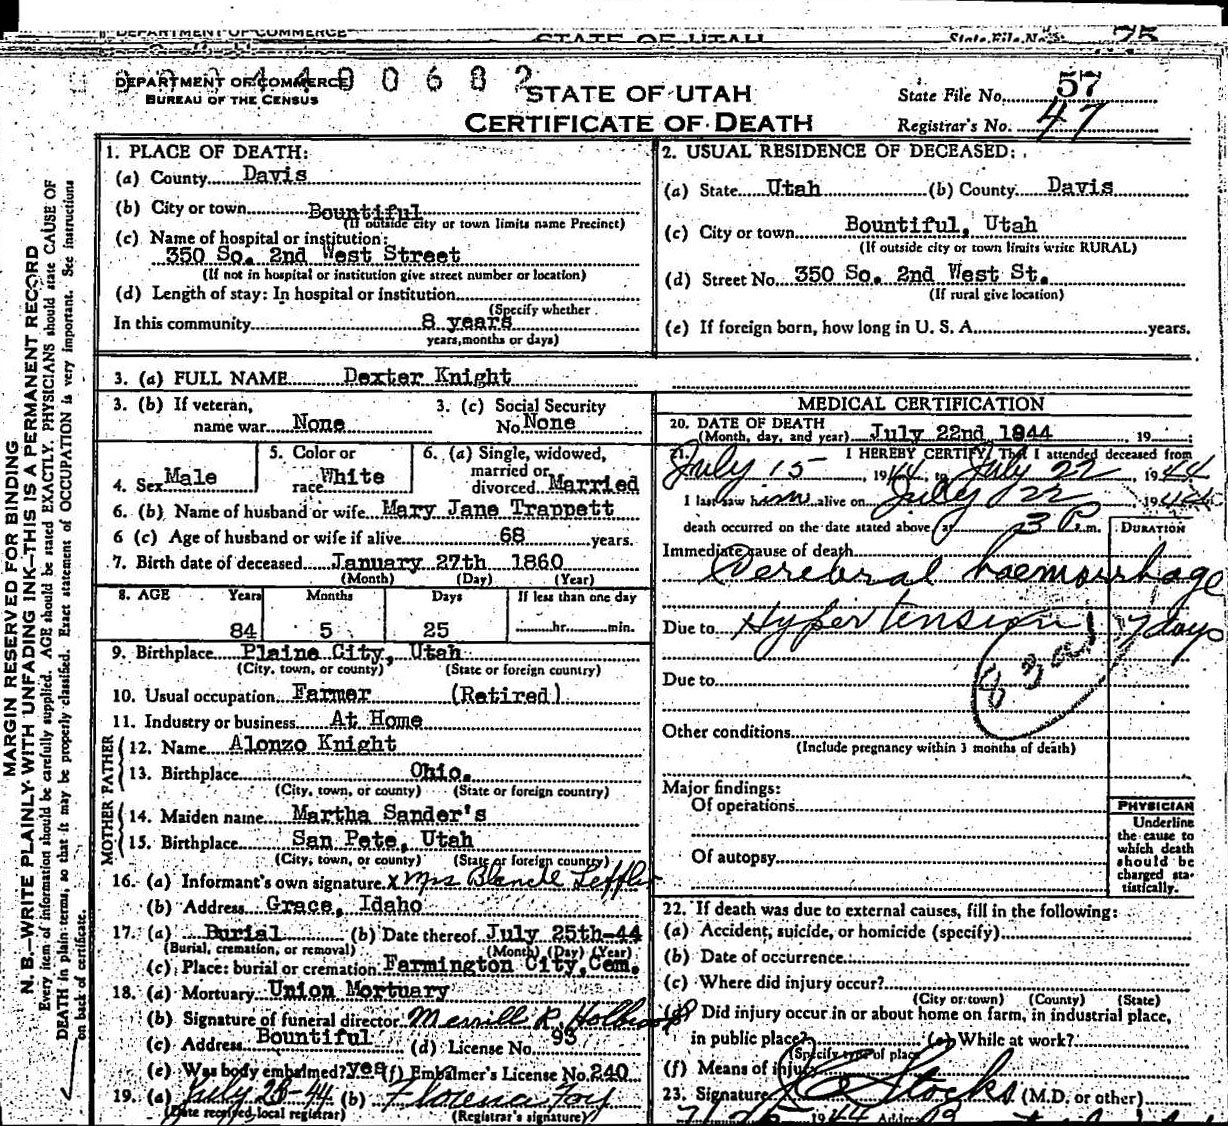 DEPARTMENT OF COMMERCE
STATE OF UTAH
State File No.
75
DEPARTMENT OF COMMERCE
BUREAU OF THE CENSUS
STATE OF UTAH
CERTIFICATE OF DEATH
State File No. 57
Registrar's No. 47
MARGIN RESERVED FOR BINDING
N. B.—WRITE PLAINLY WITH UNFADING INK—THIS IS A PERMANENT RECORD
Every item of information should be carefully supplied. AGE should be stated EXACTLY. PHYSICIANS should state CAUSE OF
DEATH in plain terms, so that it may be properly classified. Exact statement of OCCUPATION is very important. See instructions
on back of certificate.
1. PLACE OF DEATH:
(a) County Davis
(b) City or town Bountiful
(If outside city or town limits name Precinct)
(c) Name of hospital or institution:
350 So. 2nd West Street
(If not in hospital or institution give street number or location)
(d) Length of stay: In hospital or institution
(Specify whether
In this community 8 years
years, months or days)
2. USUAL RESIDENCE OF DECEASED:
(a) State Utah (b) County Davis
(c) City or town Bountiful, Utah
(If outside city or town limits write RURAL)
(d) Street No. 350 So. 2nd West St.
(If rural give location)
(e) If foreign born, how long in U. S. A. years.
3. (a) FULL NAME Dexter Knight
3. (b) If veteran, name war None
3. (c) Social Security No. None
4. Sex Male
5. Color or race White
6. (a) Single, widowed, married or divorced Married
6. (b) Name of husband or wife Mary Jane Trappett
6 (c) Age of husband or wife if alive 68 years.
7. Birth date of deceased January 27th 1860
(Month) (Day) (Year)
8. AGE Years Months Days If less than one day
84 5 25 hr. min.
9. Birthplace Plaine City, Utah
(City, town, or county) (State or foreign country)
10. Usual occupation Farmer (Retired)
11. Industry or business At Home
FATHER
12. Name Alonzo Knight
13. Birthplace Ohio.
(City, town, or county) (State or foreign country)
MOTHER
14. Maiden name Martha Sander's
15. Birthplace San Pete, Utah
(City, town, or county) (State or foreign country)
16. (a) Informant's own signature X Mrs Blanche Leffler
(b) Address Grace, Idaho
17. (a) Burial (b) Date thereof July 25th-44
(Burial, cremation, or removal) (Month) (Day) (Year)
(c) Place: burial or cremation Farmington City, Cem.
18. (a) Mortuary Union Mortuary
(b) Signature of funeral director Merrill R Holbrook
(c) Address Bountiful (d) License No. 93
(e) Was body embalmed? yes (f) Embalmer's License No. 240
19. (a) July 23-44 (b) Florence Foy
(Date received local registrar) (Registrar's signature)
MEDICAL CERTIFICATION
20. DATE OF DEATH
(Month, day, and year) July 22nd 1844, 19
21. I HEREBY CERTIFY, That I attended deceased from
July 15 1944, to July 22 1944
I last saw him alive on July 22 1944
death occurred on the date stated above at 3 P.m.
DURATION
Immediate cause of death
Cerebral haemorrhage
Due to Hypertension 7 days
Due to
Other conditions
(Include pregnancy within 3 months of death)
Major findings:
Of operations
Of autopsy
PHYSICIAN
Underline
the cause to
which death
should be
charged sta-
tistically.
22. If death was due to external causes, fill in the following:
(a) Accident, suicide, or homicide (specify)
(b) Date of occurrence
(c) Where did injury occur?
(City or town) (County) (State)
Did injury occur in or about home on farm, in industrial place,
in public place? (e) While at work?
(Specify type of place
(f) Means of injury
23. Signature Stocks (M.D. or other)
1944